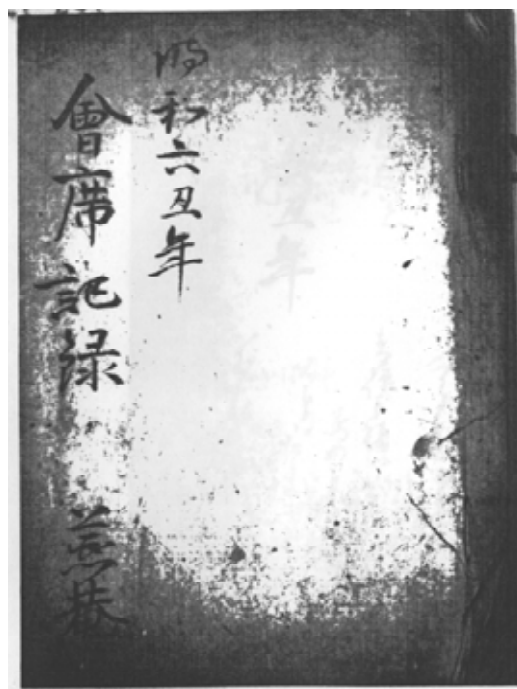 明和六丑年
會席記録